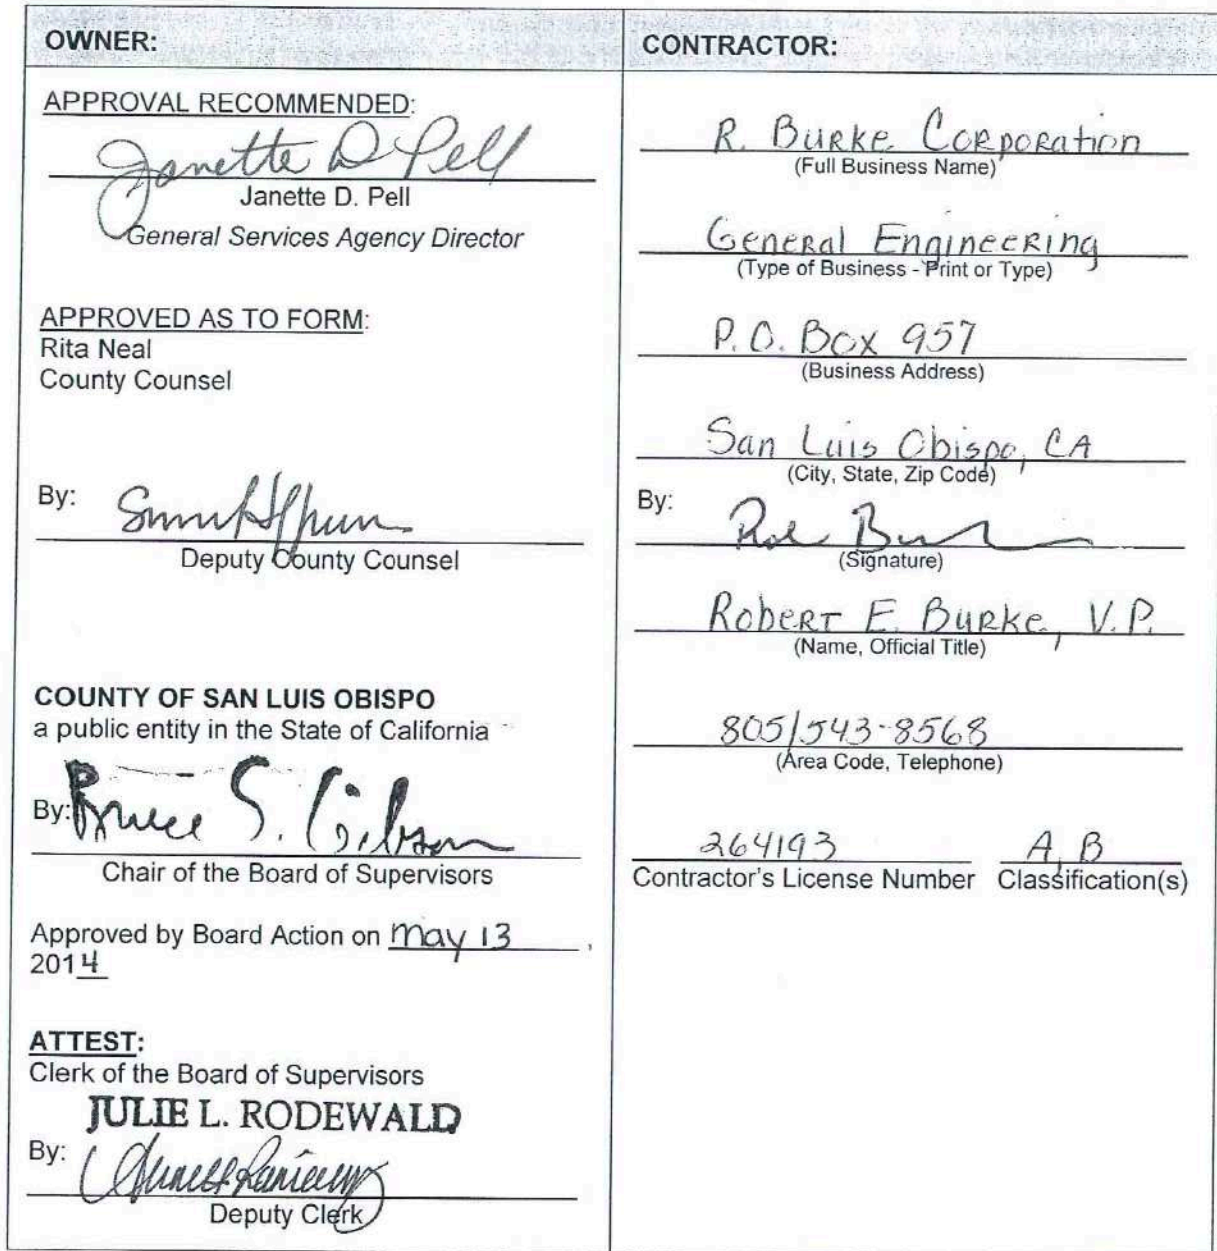 OWNER:
APPROVAL RECOMMENDED:
Janette D Pell
Janette D. Pell
General Services Agency Director
APPROVED AS TO FORM:
Rita Neal
County Counsel
By:
Deputy County Counsel
COUNTY OF SAN LUIS OBISPO
a public entity in the State of California
By: Bruce S. Gibson
Chair of the Board of Supervisors
Approved by Board Action on May 13,
2014
ATTEST:
Clerk of the Board of Supervisors
JULIE L. RODEWALD
By:
Deputy Clerk
CONTRACTOR:
R. Burke Corporation
(Full Business Name)
General Engineering
(Type of Business - Print or Type)
P.O. Box 957
(Business Address)
San Luis Obispo, CA
(City, State, Zip Code)
By:
(Signature)
Robert E. Burke, V.P.
(Name, Official Title)
805/543-8568
(Area Code, Telephone)
264193 A, B
Contractor's License Number Classification(s)